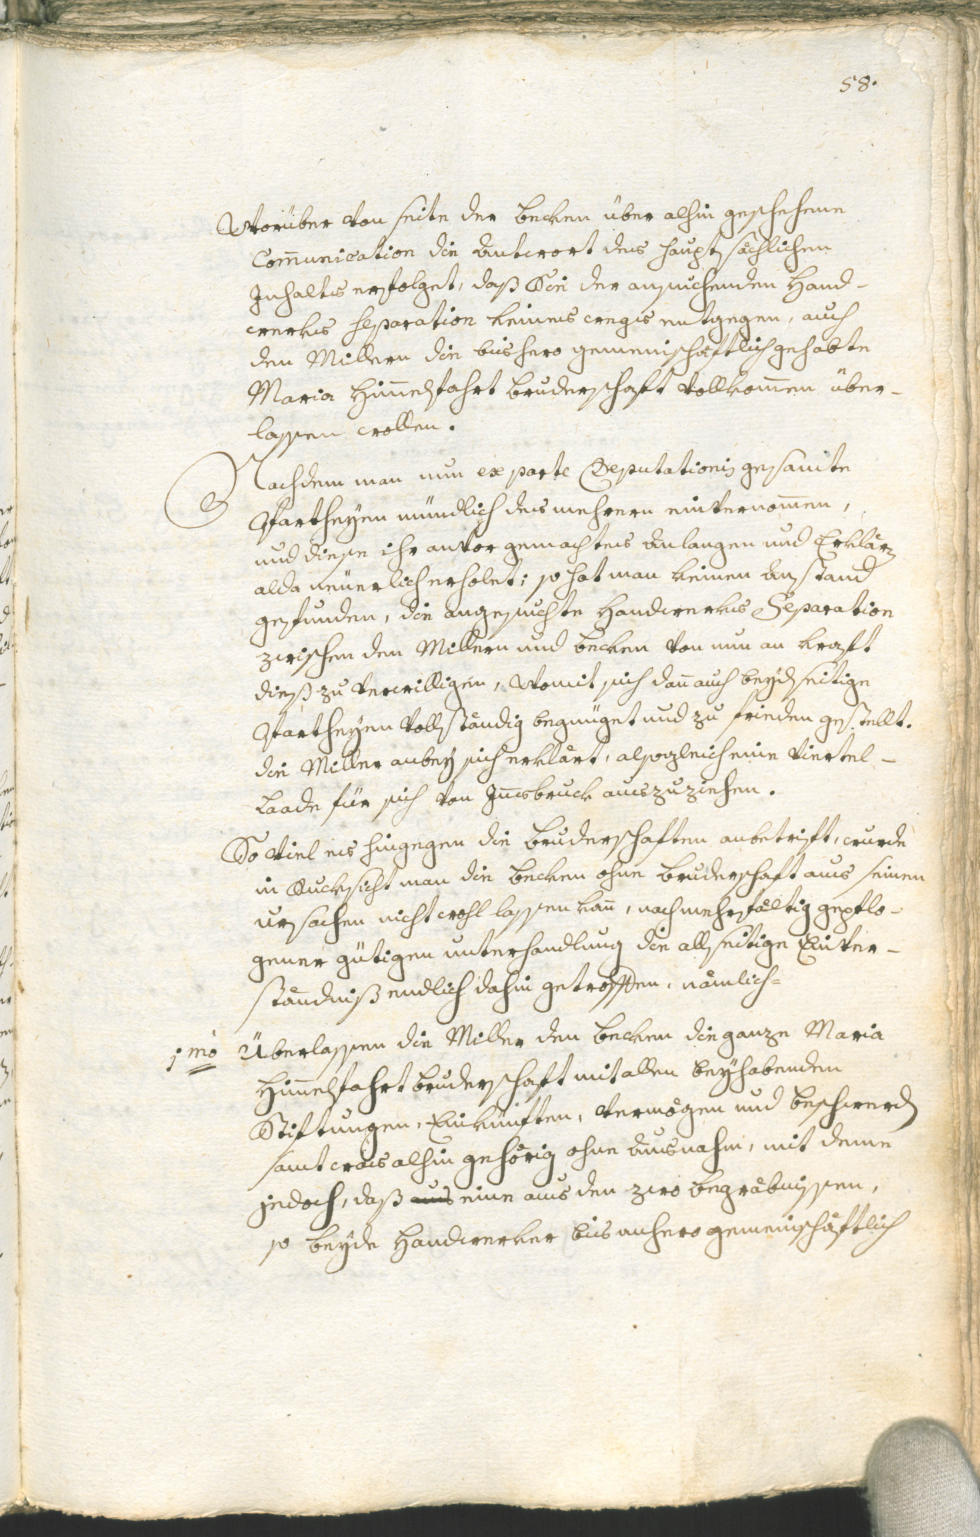 58.
Worüber von seite der Becken über alhin geschehene
Com̄unication die Antwort des hauptsächlichen
Inhalts erfolget, daß Sie der ansuchenden Hand-
werks Separation keines wegs entgegen, auch
den Millern die bishero gemeinschäftlich gehabte
Maria Him̄elfahrt Bruderschaft vollkom̄en über-
lassen wollen.
Nachdem man nun ex parte Deputationis gesam̄te
Partheyen mündlich des mehrern einvernom̄en,
und diese ihr anvor gemachtes Anlangen und Erklär
alda neuerlich erholet; so hat man keinen Anstand
gefunden, die angesuchte Handwerks Separation
zwischen den Millern und Becken von nun an kraft
dieß zu verwilligen, womit sich dan̄ auch beydseitige
Partheyen vollständig begnüget und zu frieden gestellt.
die Miller anbey sich erklärt, alsogleich eine Viertel-
Laade für sich von Jn̄sbruck auszuziehen.
So viel es hingegen die Bruderschaften anbetrift, wurde
in Rucksicht man die Becken ohne Bruderschaft aus seinen
ursachen nicht wohl lassen kan̄, nach mehrfältig gepflo-
gener gütigen unterhandlung die allseitige Einver-
ständniß endlich dahin getroffen, nämlich=
1mo Überlassen die Miller den Becken die ganze Maria
Him̄elfahrt Bruderschaft mit allen beyhabenden
Stiftungen, Einkünften, Vermögen und Beschwerd
samt was alhin gehörig ohne Ausnahm, mit deme
jedoch, daß aus eine aus den zwo begräbnissen,
so beyde Handwerker bis anhero gemeinschäftlich